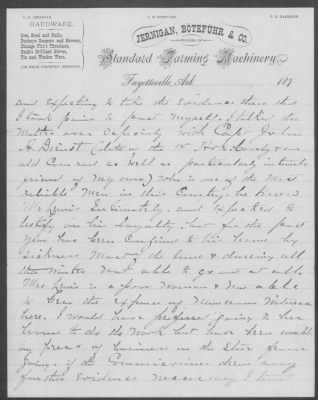 C. R. JERNIGAN
HARDWARE.
Iron, Steel and Nails,
Buckeye Reapers and Mowers,
T. W. BOTEFUHR
E. B. HARRISON
JERNIGAN, BOTEFUHR & CO.
DEALERS IN
Standard Farming Machinery,
Fayetteville, Ark. 187
and expecting to take the evidence there
I took pains to post myself. I talked the
matter over especially with Capt John
(late of the 1st Ark Cavalry & an
old Comrad as well as particularly intimate
friend of my own) who is one of the most
reliable men in this County. he knew
Mr Lewis Intimately. and expected to
testify on his loyalty but for the past
year has been Confined to his home by
Sickness most of the time & during all
the Winter not able to go out at all.
Mrs Lewis is a poor woman & not able
to bear the expense of numerous witnesses
here. I would have prefered going to her
home to do the work but have been
by press of business in the State from
going. if the Commissioners deem any
further evidence necessary I trust